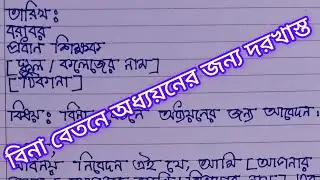 তারিখ:
বরাবর
প্রধান শিক্ষক
[স্কুল / কলেজের নাম]
[ঠিকানা]
বিনা বেতনে অধ্যয়নের জন্য দরখাস্ত
বিষয়: বিনা অধ্যয়নের জন্য আবেদন।
সবিনয় নিবেদন এই যে, আমি [আপনার